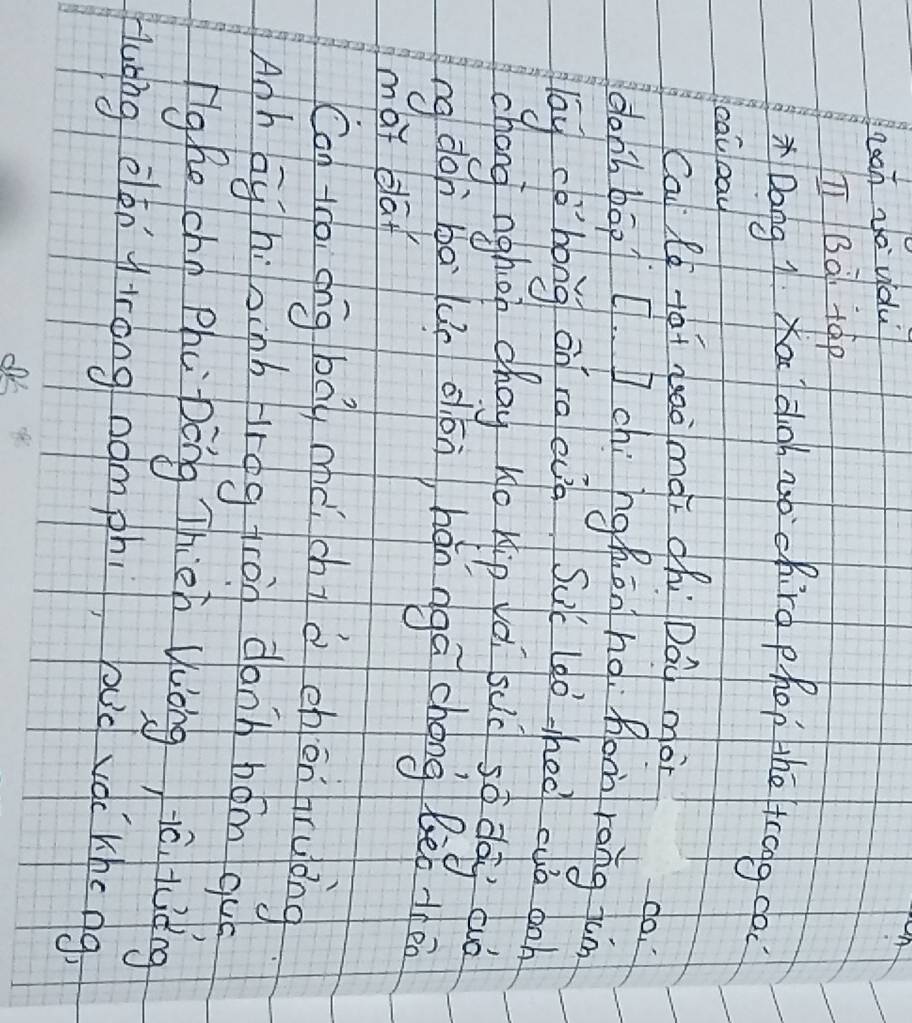 và ví dụ
II Bài tập
* Dạng 1. Xác định và chỉ ra phép thế trong các
câu sau
Cai lệ tát vào mặt chị Dậu một cái
đánh bốp: [...] chị nghiến hai hàm răng
lấy cổ hắng ấn ra cửa. Sức lẻo khoẻo của anh
chàng nghiện chạy ko kịp với sức xô đẩy của
ng đàn bà lực điền, hắn ngã chỏng quèo trên
mặt đất
Con trai ông bảy mới chỉ ở chiến trường.
Anh ấy hi sinh trog trận đánh hôm qua
Nghe chn Phù Đổng Thiên Vương, tôi tưởng
tượng đến 1 trang nam nhi, sức vóc khác ng,